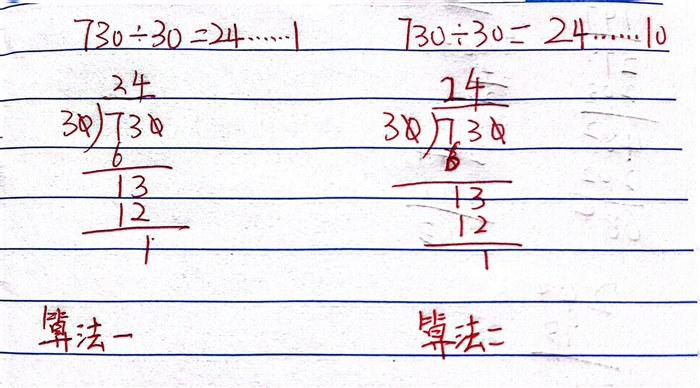 730÷30=24……1
24
30)730
6
13
12
1
算法一
730÷30=24……10
24
30)730
6
13
12
1
算法二